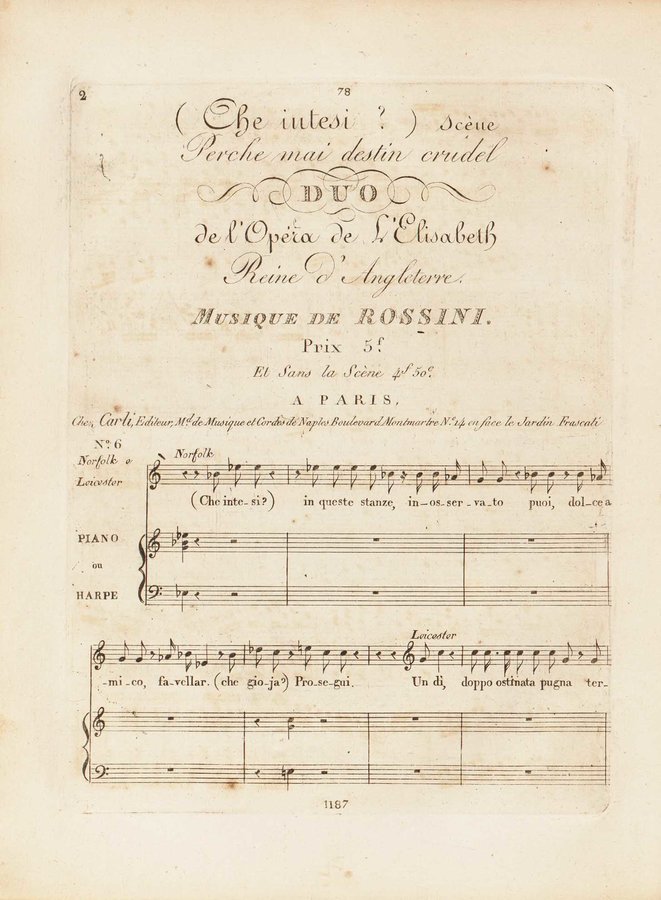 2
78
(Che intesi ?) Scène
Perche mai destin crudel
DUO
de l'Opéra de L'Elisabeth
Reine d'Angleterre.
MUSIQUE DE ROSSINI.
Prix 5f
Et Sans la Scène 4f 50c.
A PARIS,
Chez Carli, Editeur, Md. de Musique et Cordes de Naples Boulevard Montmartre No. 14 en face le Jardin Frascati
No. 6
Norfolk e
Leicester
Norfolk
(Che inte-si?) in queste stanze, in-os-ser-va-to puoi, dol-ce a
PIANO
ou
HARPE
Leicester
-mi-co, fa-vellar. (che gio-ja?) Pro-se-gui. Un dì, doppo ostinata pugna ter-
1187